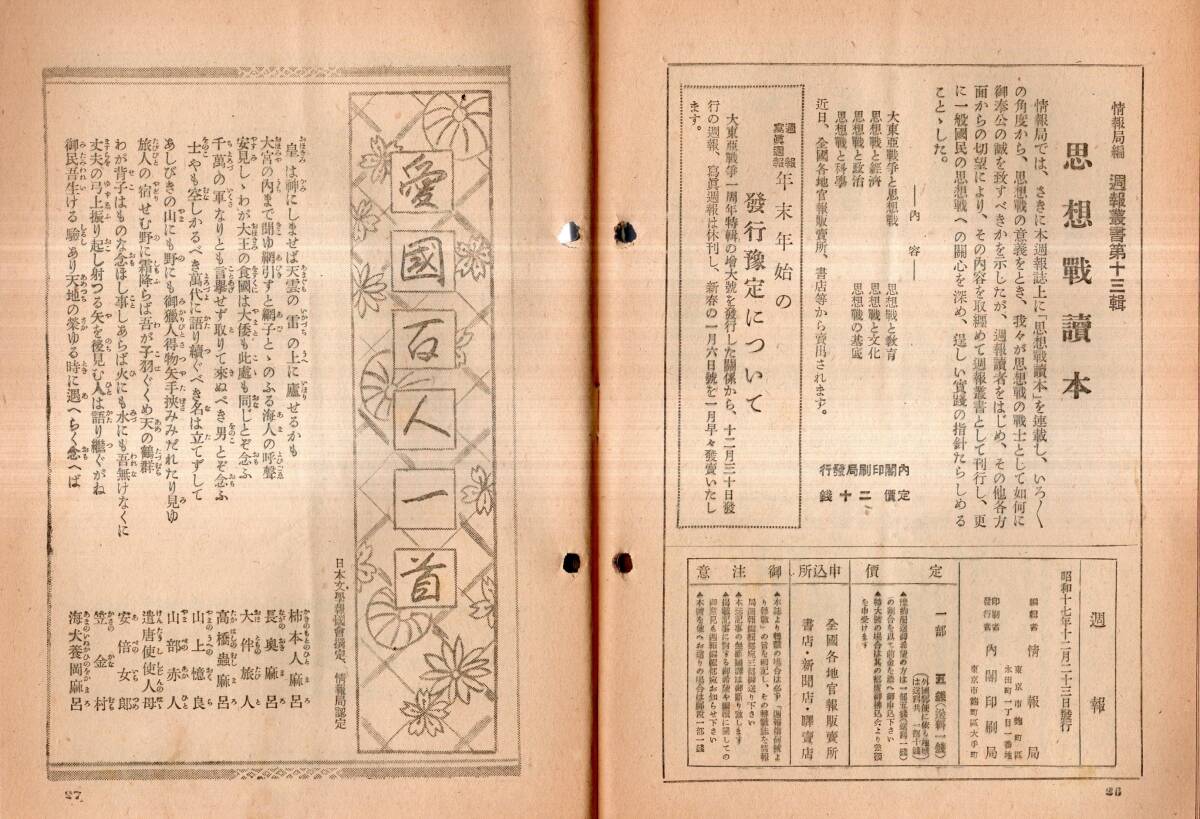 情報局編　週報叢書第十三輯
思想戰讀本
情報局では、さきに本週報誌上に「思想戰讀本」を連載し、いろ〱
の角度から、思想戰の意義をとき、我々が思想戰の戰士として如何に
御奉公の誠を致すべきかを示したが、週報讀者をはじめ、その他各方
面からの切望により、その内容を取纒めて週報叢書として刊行し、更
に一般國民の思想戰への關心を深め、逞しい實踐の指針たらしめる
ことゝした。
――内　容――
大東亞戰爭と思想戰　思想戰と教育
思想戰と經濟　思想戰と文化
思想戰と政治　思想戰の基底
思想戰と科學
近日、全國各地官報販賣所、書店等から賣出されます。
内閣印刷局發行
定價二十錢
週報
寫眞週報
年末年始の
發行豫定について
大東亞戰爭一周年特輯の增大號を發行した關係から、十二月三十日發
行の週報、寫眞週報は休刊し、新春の一月六日號を一月早々發賣いたし
ます。
週報
昭和十七年十二月二十三日發行
編輯者　情報局
東京市麴町區
永田町一丁目一番地
印刷者
發行者　内閣印刷局
東京市麴町區大手町
定價
一部　五錢(送料一錢)
(外國郵便に依る地域
は送料共　一部十錢)
を申受けます
申込所
全國各地官報販賣所
書店・新聞店・驛賣店
御注意
26
愛國百人一首
日本文學報國會撰定、情報局認定
皇は神にしませば天雲の雷の上に廬せるかも　柿本人麻呂
大宮の内まで聞ゆ網引すと網子とゝのふる海人の呼聲　長奥麻呂
安見しゝわが大王の食國は大倭も此處も同じとぞ念ふ　大伴旅人
千萬の軍なりとも言擧せず取りて來ぬべき男とぞ念ふ　高橋蟲麻呂
士やも空しかるべき萬代に語り續ぐべき名は立てずして　山上憶良
あしびきの山にも野にも御獵人得物矢手挾みみだれたり見ゆ　山部赤人
旅人の宿せむ野に霜降らば吾が子羽ぐくめ天の鶴群　遣唐使使人母
わが背子はものな念ほし事しあらば火にも水にも吾無けなくに　安倍女郎
丈夫の弓上振り起し射つる矢を後見む人は語り繼ぐがね　笠金村
御民吾生ける驗あり天地の榮ゆる時に遇へらく念へば　海犬養岡麻呂
27